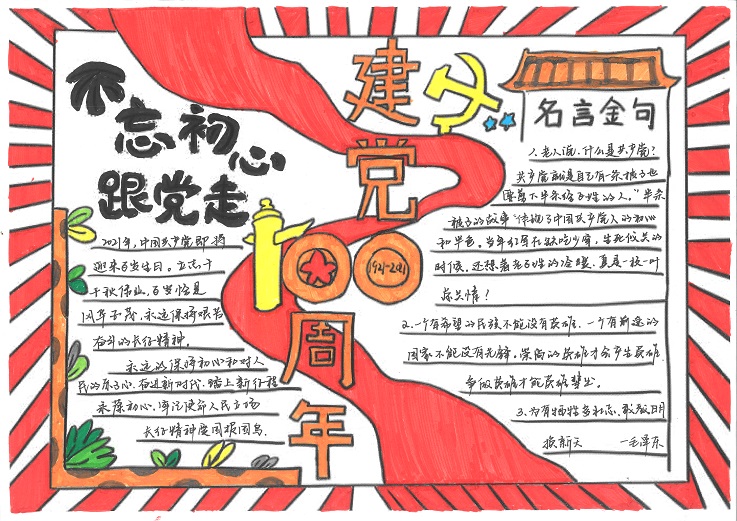 不忘初心
跟党走
建党
100
1921-2021
周年
2021年,中国共产党即将
迎来百岁生日。立志千
千秋伟业,百岁恰是
风华正茂,永远保持艰苦
奋斗的长征精神。
永远的保持初心和对人
民的赤子心,奋进新时代,踏上新征程
永葆初心,牢记使命人民立场
长征精神
名言金句
1、老人说,什么是共产党?
共产党就是自己有一条被子也
要剪下半条给百姓的人。"半条
被子的故事"体现了中国共产党人的初心
和本色,当年红军缺吃少穿,生死攸关的
时候,还想着老百姓的冷暖,真是一枝一叶
总关情!
2.一个有希望的民族不能没有英雄,一个有前途的
国家不能没有先锋,崇尚的英雄才会产生英雄
争做英雄才能英雄辈出。
3、为有牺牲多壮志,敢教日月
换新天 —毛泽东